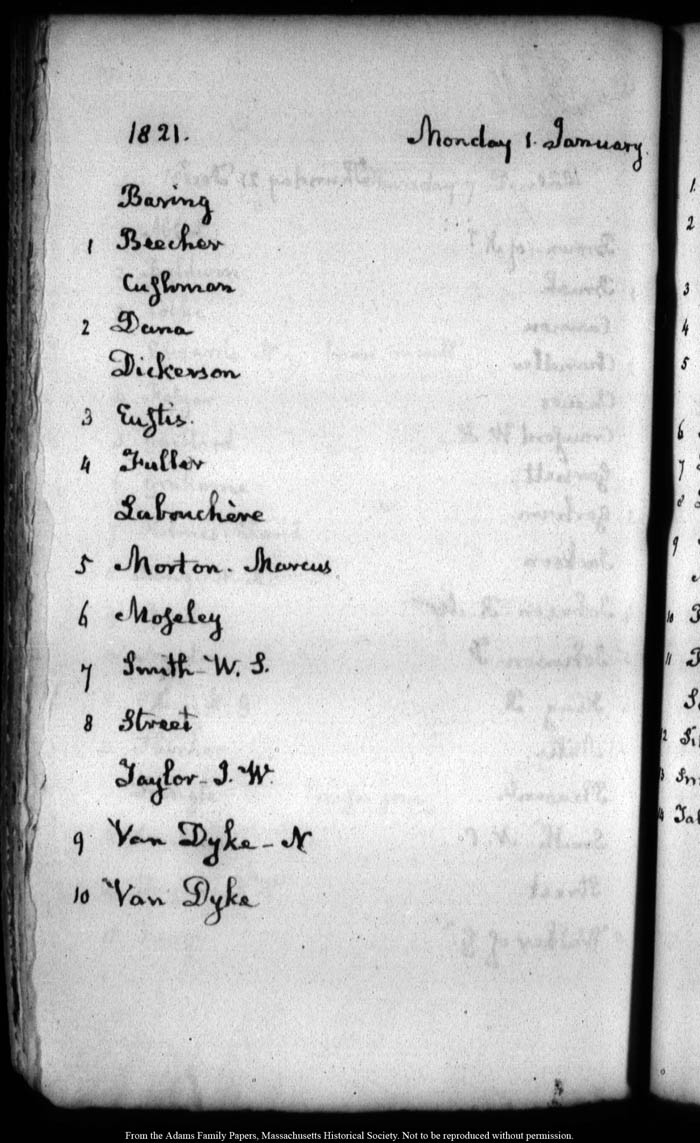 1821. Monday 1. January.
Baring
1 Beecher
Cuſhman
2 Dana
Dickerson
3 Euſtis.
4 Fuller
Labouchère
5 Morton. Marcus
6 Moſeley
7 Smith- W. S.
8 Street
Taylor- J. W.
9 Van Dyke- N
10 Van Dyke
1.
2
3
4
5
6
7
8
9
10
11
12
13
14
From the Adams Family Papers, Massachusetts Historical Society. Not to be reproduced without permission.